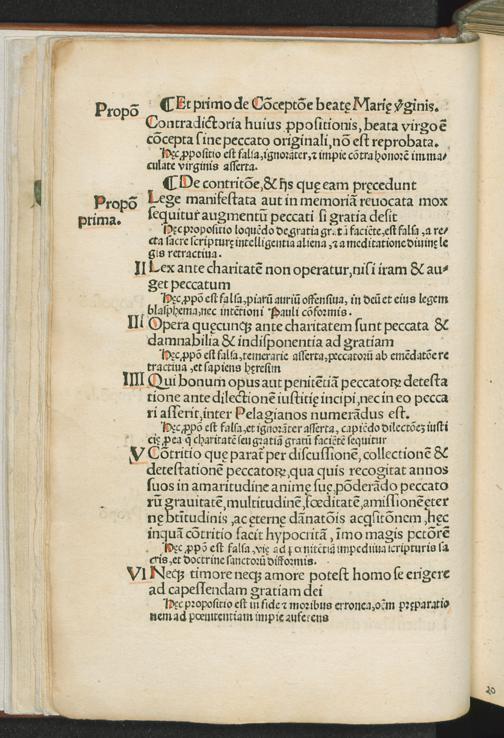 Propõ
¶Et primo de Cõceptõe beatę Marię v̄ginis.
Contradictoria huius ꝓpositionis, beata virgo ē
cõcepta sine peccato originali, nõ est reprobata.
Hęc ꝓpositio est falsa, ignorāter, ⁊ impie cõtra honorē imma⸗
culate virginis asserta.
¶De contritõe, & hijs quę eam pręcedunt
Propõ
prima.
Lege manifestata aut in memoriā reuocata mox
sequitur augmentū peccati si gratia desit
Hęc propositio loquēdo de gratia gratū faciēte, est falsa, a re⸗
cta sacre scripturę intelligentia aliena, ⁊ a meditatione diuinę le
gis retractiua.
II Lex ante charitatē non operatur, nisi iram & au⸗
get peccatum
Hęc, ꝓpõ est falsa, piarū auriū offensiua, in deū et eius legem
blasphema, nec intētioni Pauli cõformis.
III Opera quęcunqꝫ ante charitatem sunt peccata &
damnabilia & indisponentia ad gratiam
Hęc, ꝓpõ est falsa, temerarie asserta, peccatorū ab emēdatõe re
tractiua, et sapiens hęresim
IIII Qui bonum opus aut penitētiā peccatorꝫ detesta
tione ante dilectionē iustitię incipi, nec in eo pecca
ri asserit, inter Pelagianos numerādus est.
Hęc, ꝓpõ est falsa, et ignorāter asserta, capiēdo dilectõeꝫ iusti
cię, p ea q̄ charitatē seu gratiā gratū faciētē sequitur
V Cõtritio quę paratr̄ per discussionē, collectionē &
detestationē peccatorꝫ, qua quis recogitat annos
suos in amaritudine animę suę, põderādo peccato
rū grauitatē, multitudinē, fœditatē, amissionē ęter
nę btitudinis, ac ęternę dānatõis acqsitõnem, hęc
inquā cõtritio facit hypocritā, īmo magis pctõrē
Hęc, ꝓpõ est falsa, vię ad pœnitētiā impeditiua scripturis sa
cris, et doctrinę sanctorū difformis.
VI Necqꝫ timore necqꝫ amore potest homo se erigere
ad capessendam gratiam dei
Hęc propositio est in fide ⁊ moribus erronea, oēm pręparatio
nem ad pœnitentiam impie auferens
20